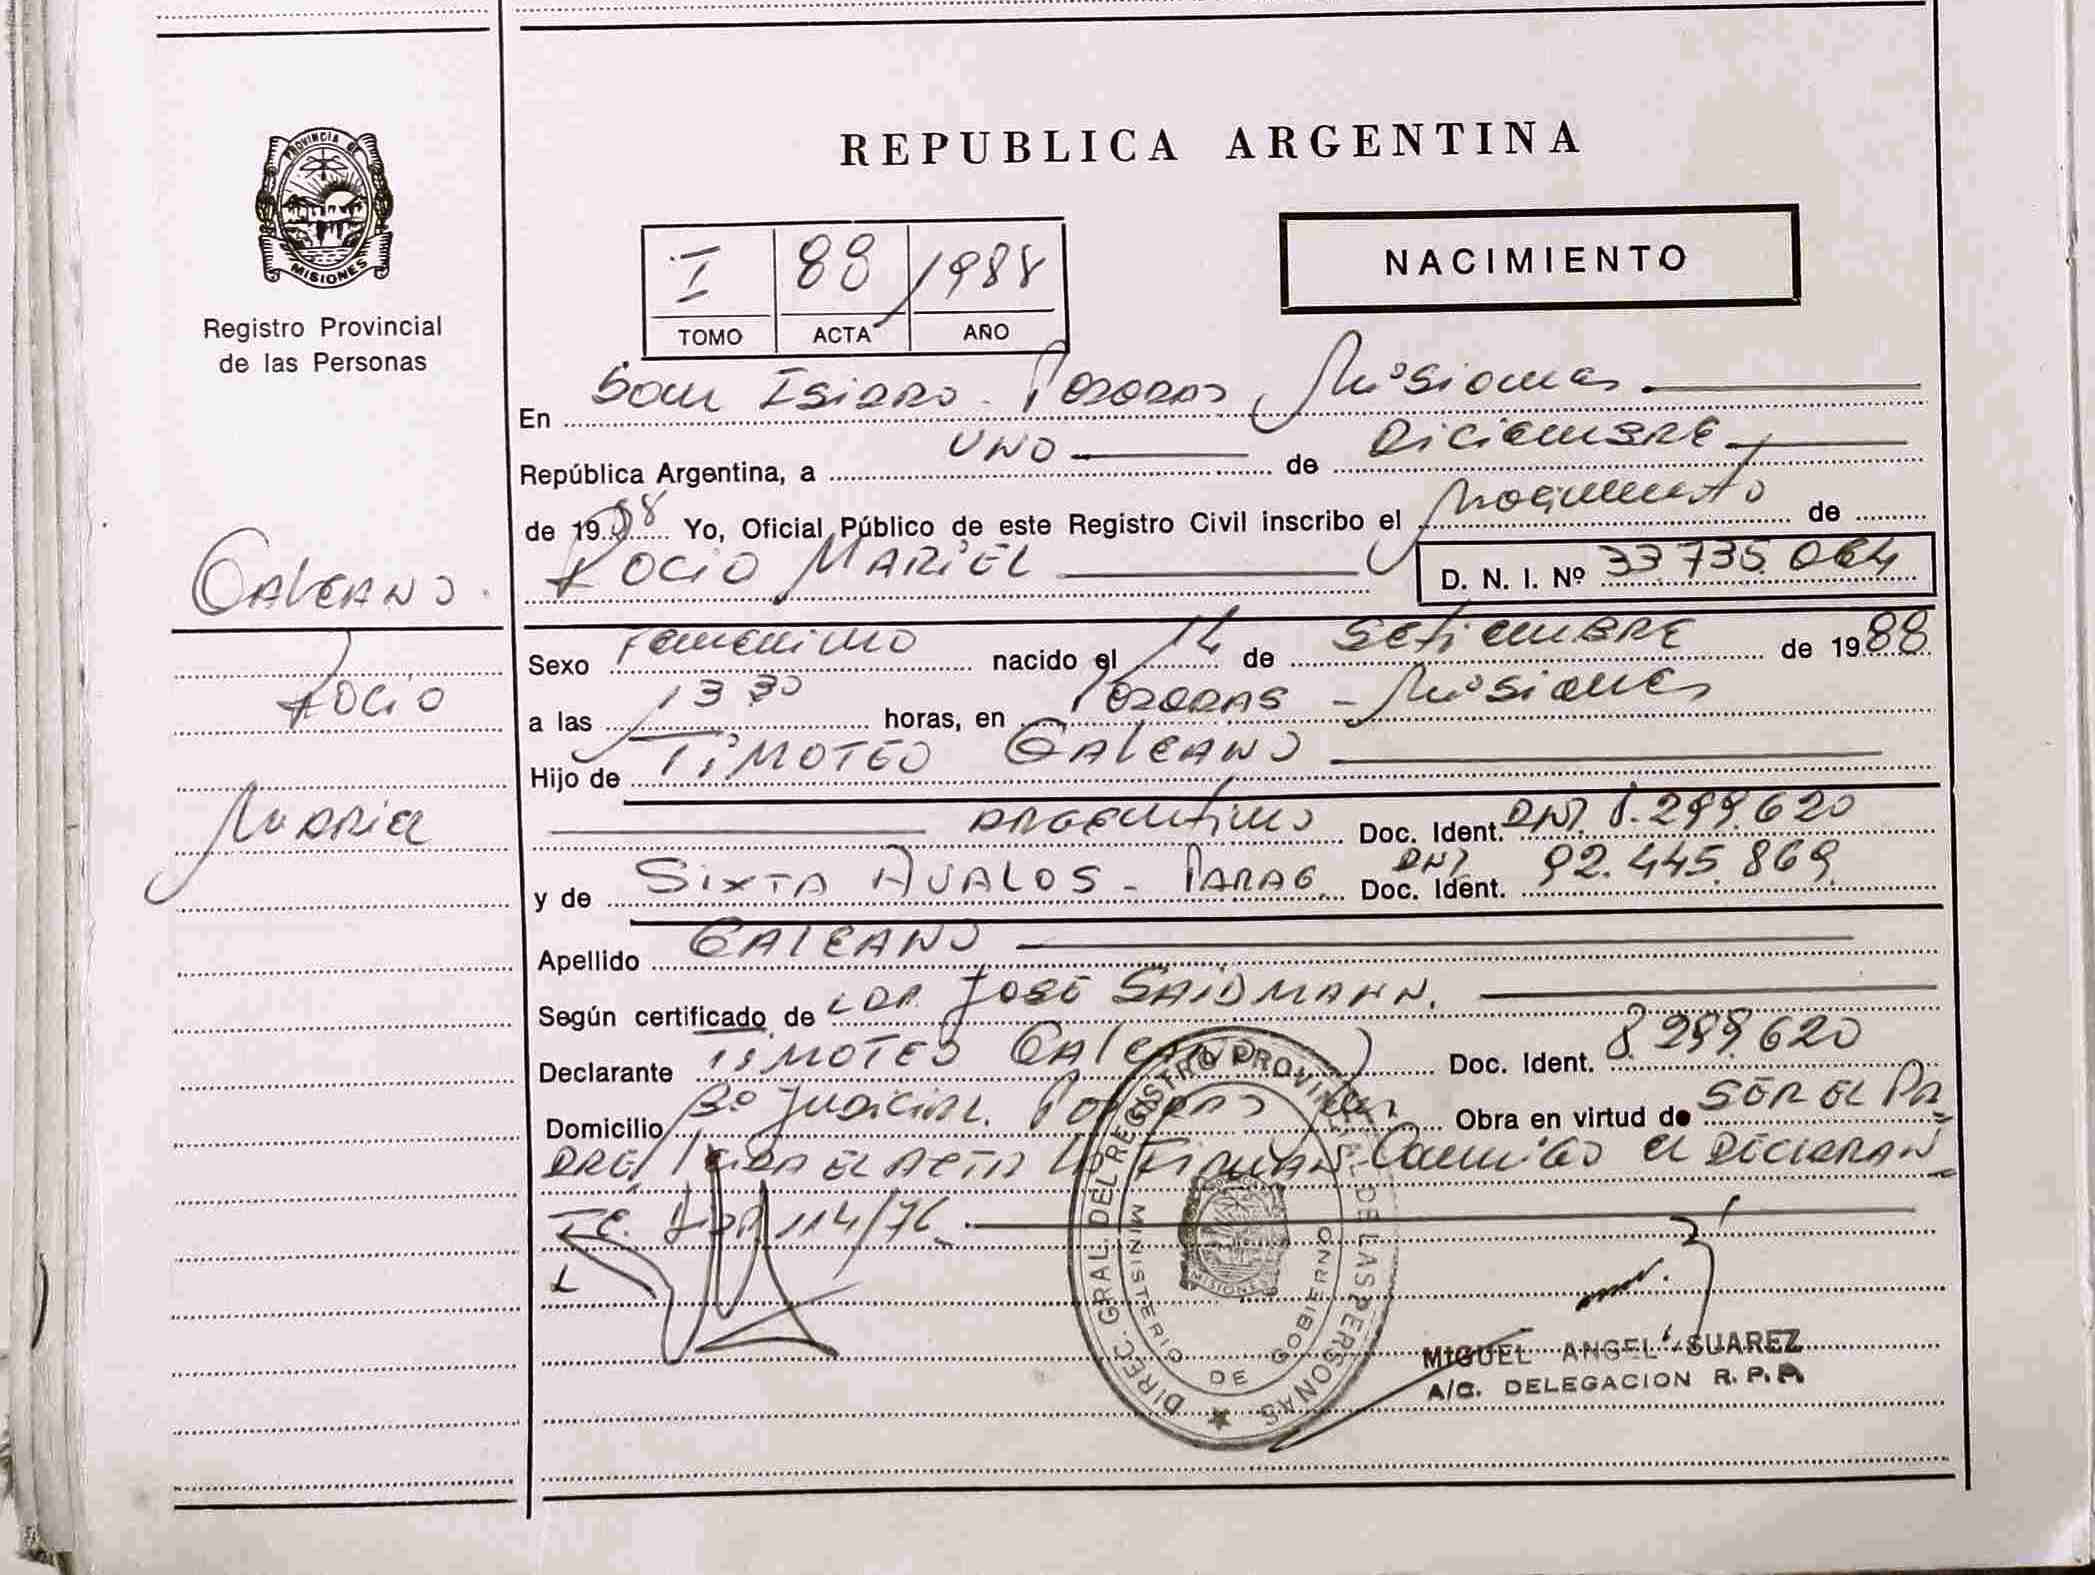 PROVINCIA DE
MISIONES
Registro Provincial
de las Personas
REPUBLICA ARGENTINA
NACIMIENTO
I 88 1988
TOMO ACTA AÑO
En San Isidro - Posadas Misiones
República Argentina, a UNO de Diciembre
de 1988 Yo, Oficial Público de este Registro Civil inscribo el Nacimiento de
ROCIO MARIEL D. N. I. Nº 33 735 064
GALEANO
ROCIO
Mariel
Sexo Femenino nacido el 14 de Setiembre de 1988
a las 13 30 horas, en Posadas - Misiones
Hijo de TIMOTEO GALEANO
argentino Doc. Ident. DNI. 8.299.620
y de SIXTA AVALOS - PARAG. Doc. Ident. DNI 92.445.869
Apellido GALEANO
Según certificado de JOSE SAIDMANN.
Declarante TIMOTEO GALEANO Doc. Ident. 8.299.620
Domicilio Bº Judicial. Posadas Obra en virtud de SER EL PA
DRE, Leida EL ACTA LA FIRMAN Conmigo el DECLARAN
TE. 114/76
DIREC. GRAL. DEL REGISTRO PROVINCIAL DE LAS PERSONAS
MINISTERIO DE GOBIERNO
MISIONES
MIGUEL ANGEL SUAREZ
A/C. DELEGACION R. P. P.